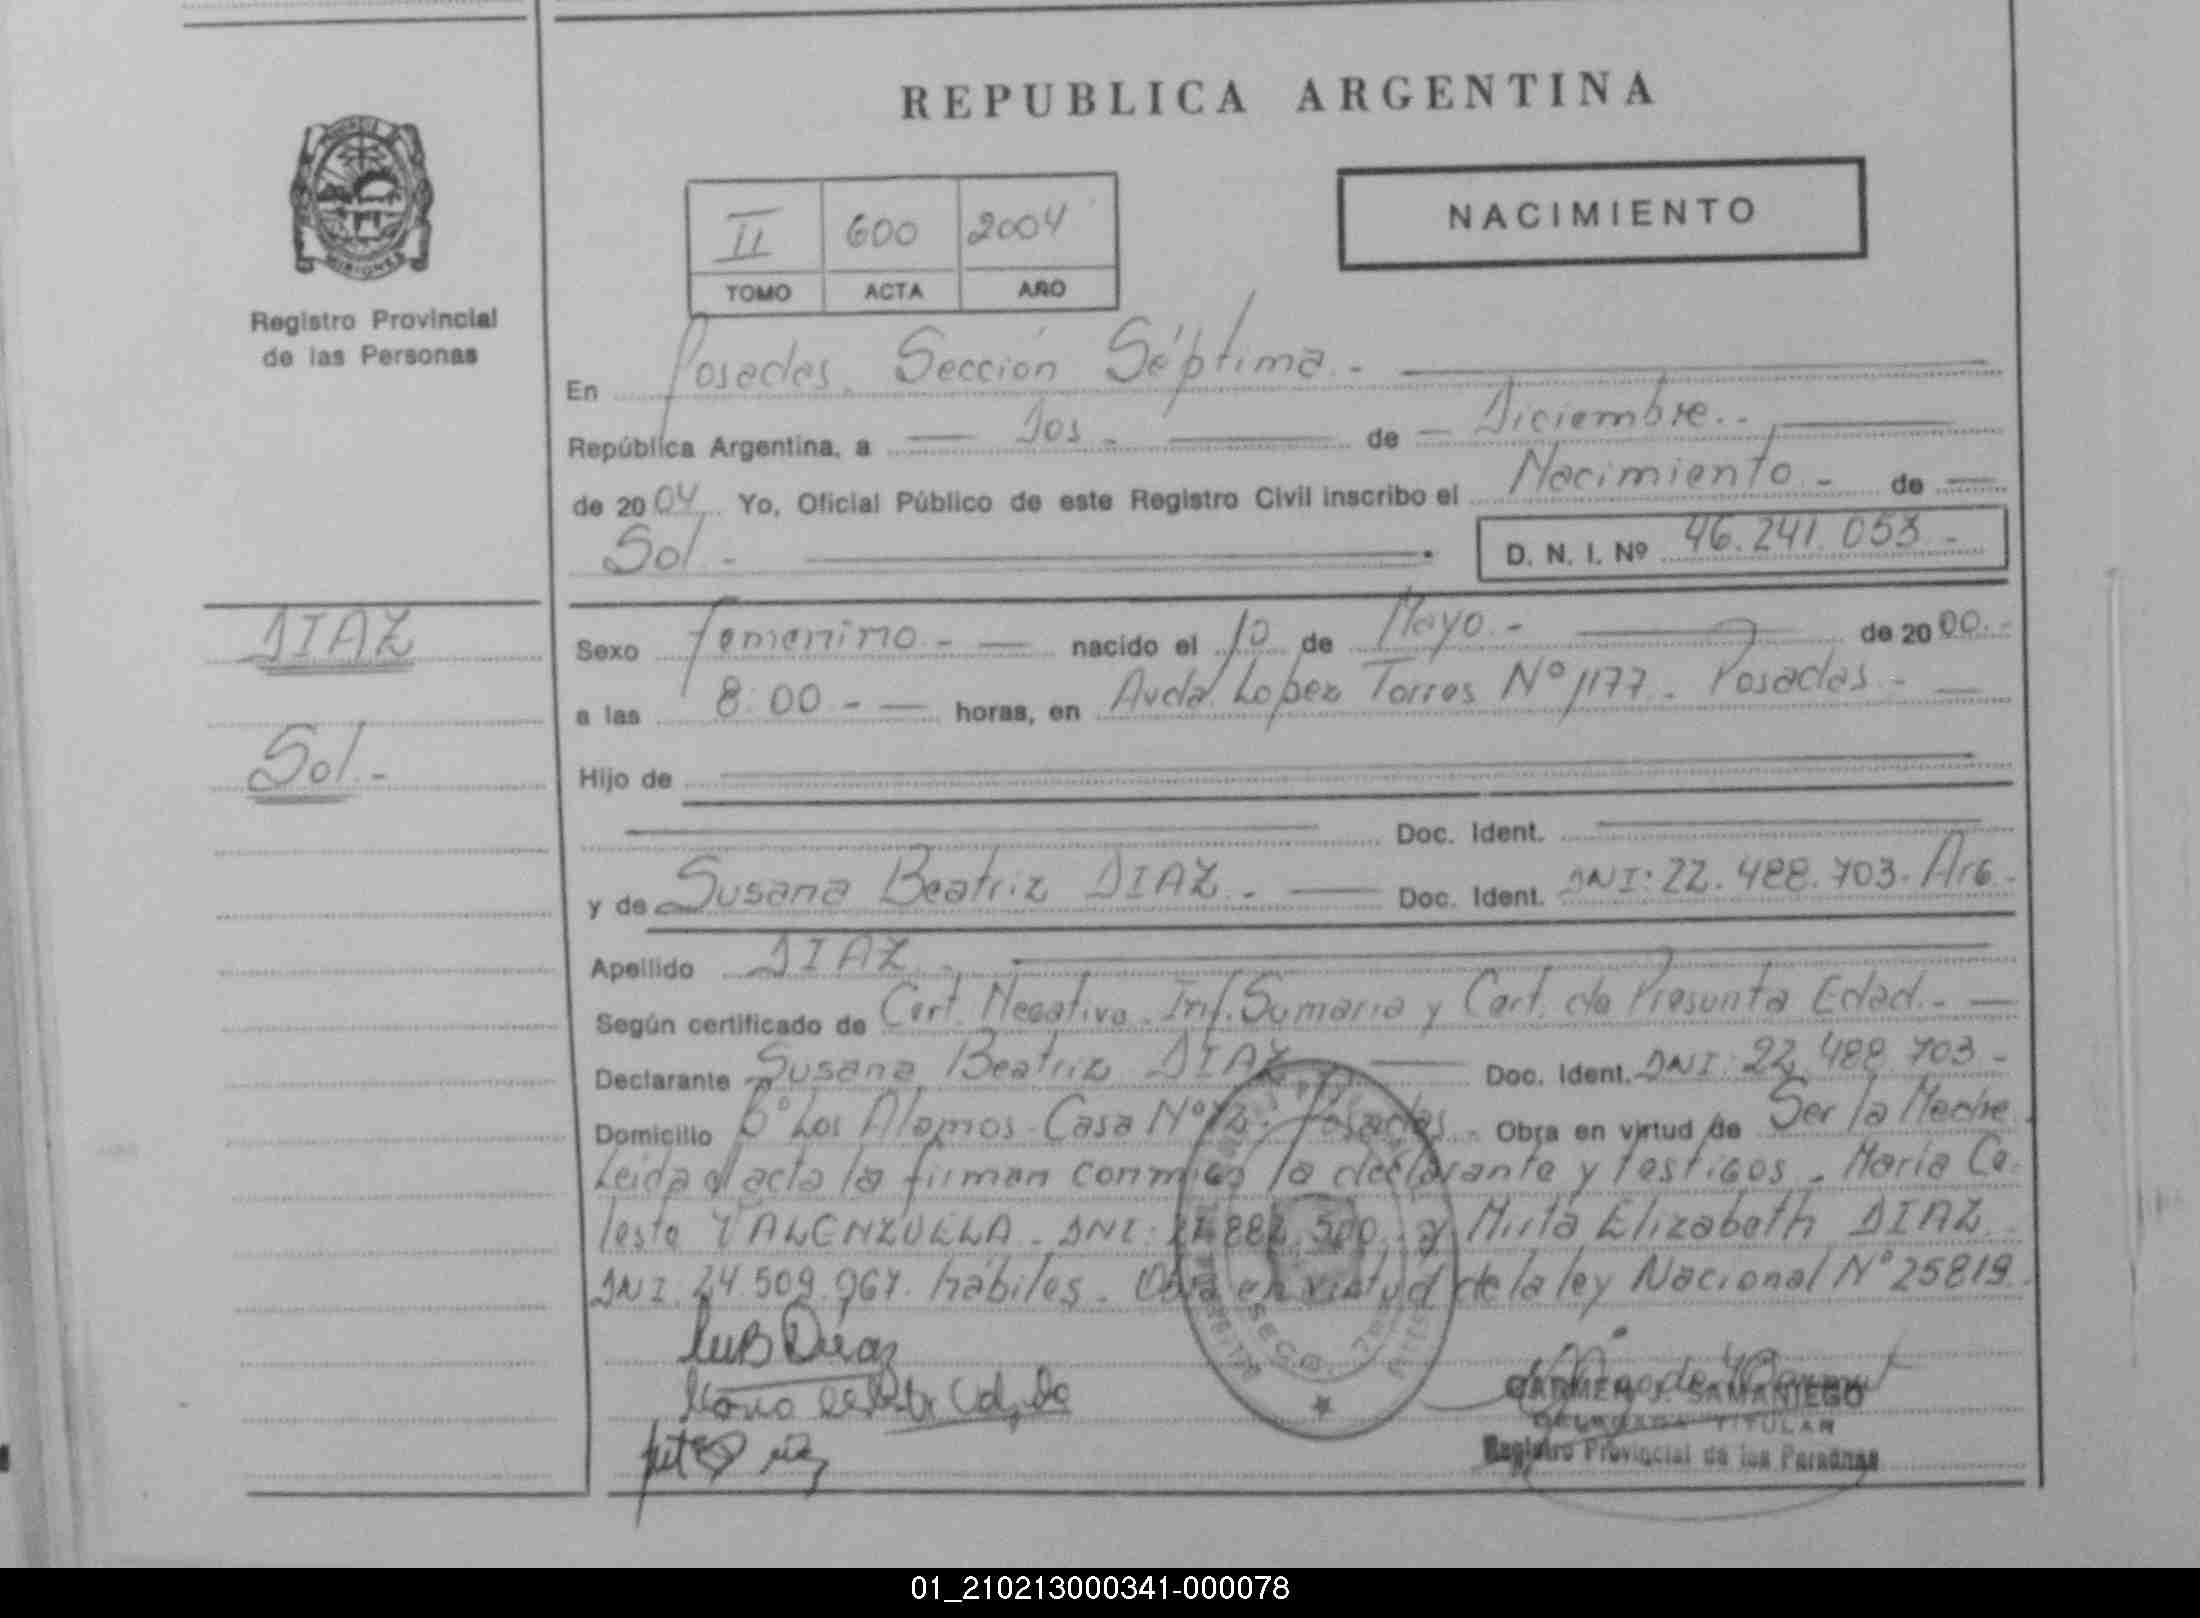 REPUBLICA ARGENTINA
MISIONES
Registro Provincial
de las Personas
II 600 2004
TOMO ACTA AÑO
NACIMIENTO
En Posadas. Sección Séptima.-
República Argentina, a Dos.- de Diciembre.-
de 2004 Yo, Oficial Público de este Registro Civil inscribo el Nacimiento.- de
Sol.- D. N. I. Nº 46.241.053.-
DIAZ
Sol.-
Sexo Femenino.- nacido el 10 de Mayo.- de 2000.-
a las 8:00.- horas, en Avda. Lopez Torres Nº 1177. Posadas.-
Hijo de
Doc. Ident.
y de Susana Beatriz DIAZ.- Doc. Ident. DNI: 22.488.703. Arg.
Apellido DIAZ.-
Según certificado de Cert. Negativo. Inf. Sumaria y Cert. de Presunta Edad.-
Declarante Susana Beatriz DIAZ Doc. Ident. DNI: 22.488.703-
Domicilio Bº Los Alamos. Casa Nº Posadas.- Obra en virtud de Ser la Madre
Leida el acta la firman conmigo la declarante y testigos. Maria Ce-
leste VALENZUELA. DNI: y Mirta Elizabeth DIAZ
DNI. 24.509.967. hábiles. Obra en virtud de la ley Nacional Nº 25819.
Diaz
Maria
CARMEN J. SAMANIEGO
DELEGADA TITULAR
Registro Provincial de las Personas
01_210213000341-000078